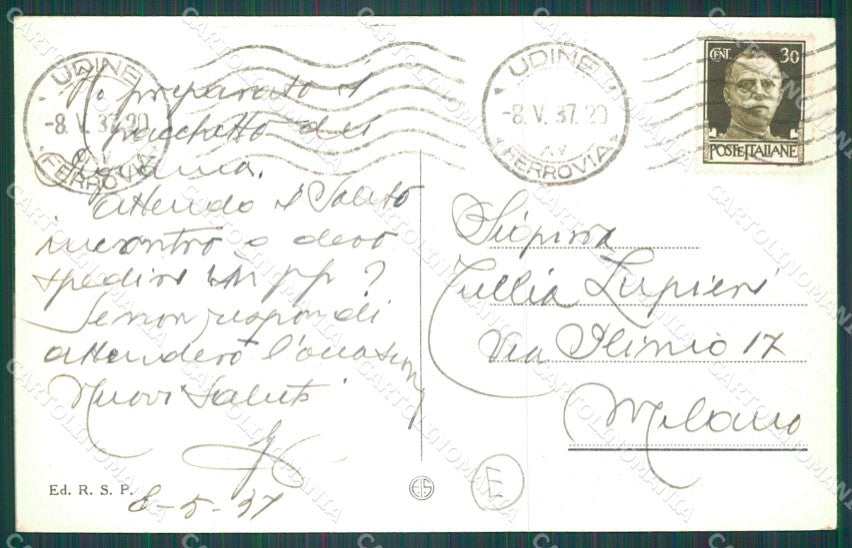 UDINE
-8.V.37.20
FERROVIA
UDINE
-8.V.37.20
FERROVIA
CENT. 30
POSTE ITALIANE
Ho preparato il
pacchetto dei
Attendo il Solito
incontro o devo
spedire in pp?
Se non rispondi
attenderò l'occasione
Nuovi Saluti
8-5-37
Ed. R. S. P.
E
Signora
Tullia Lupieri
Via Plinio 17
Milano
CARTOLINOMANIA